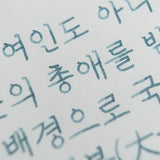 여인도 아니
의 총애를 받
배경으로 국
(大